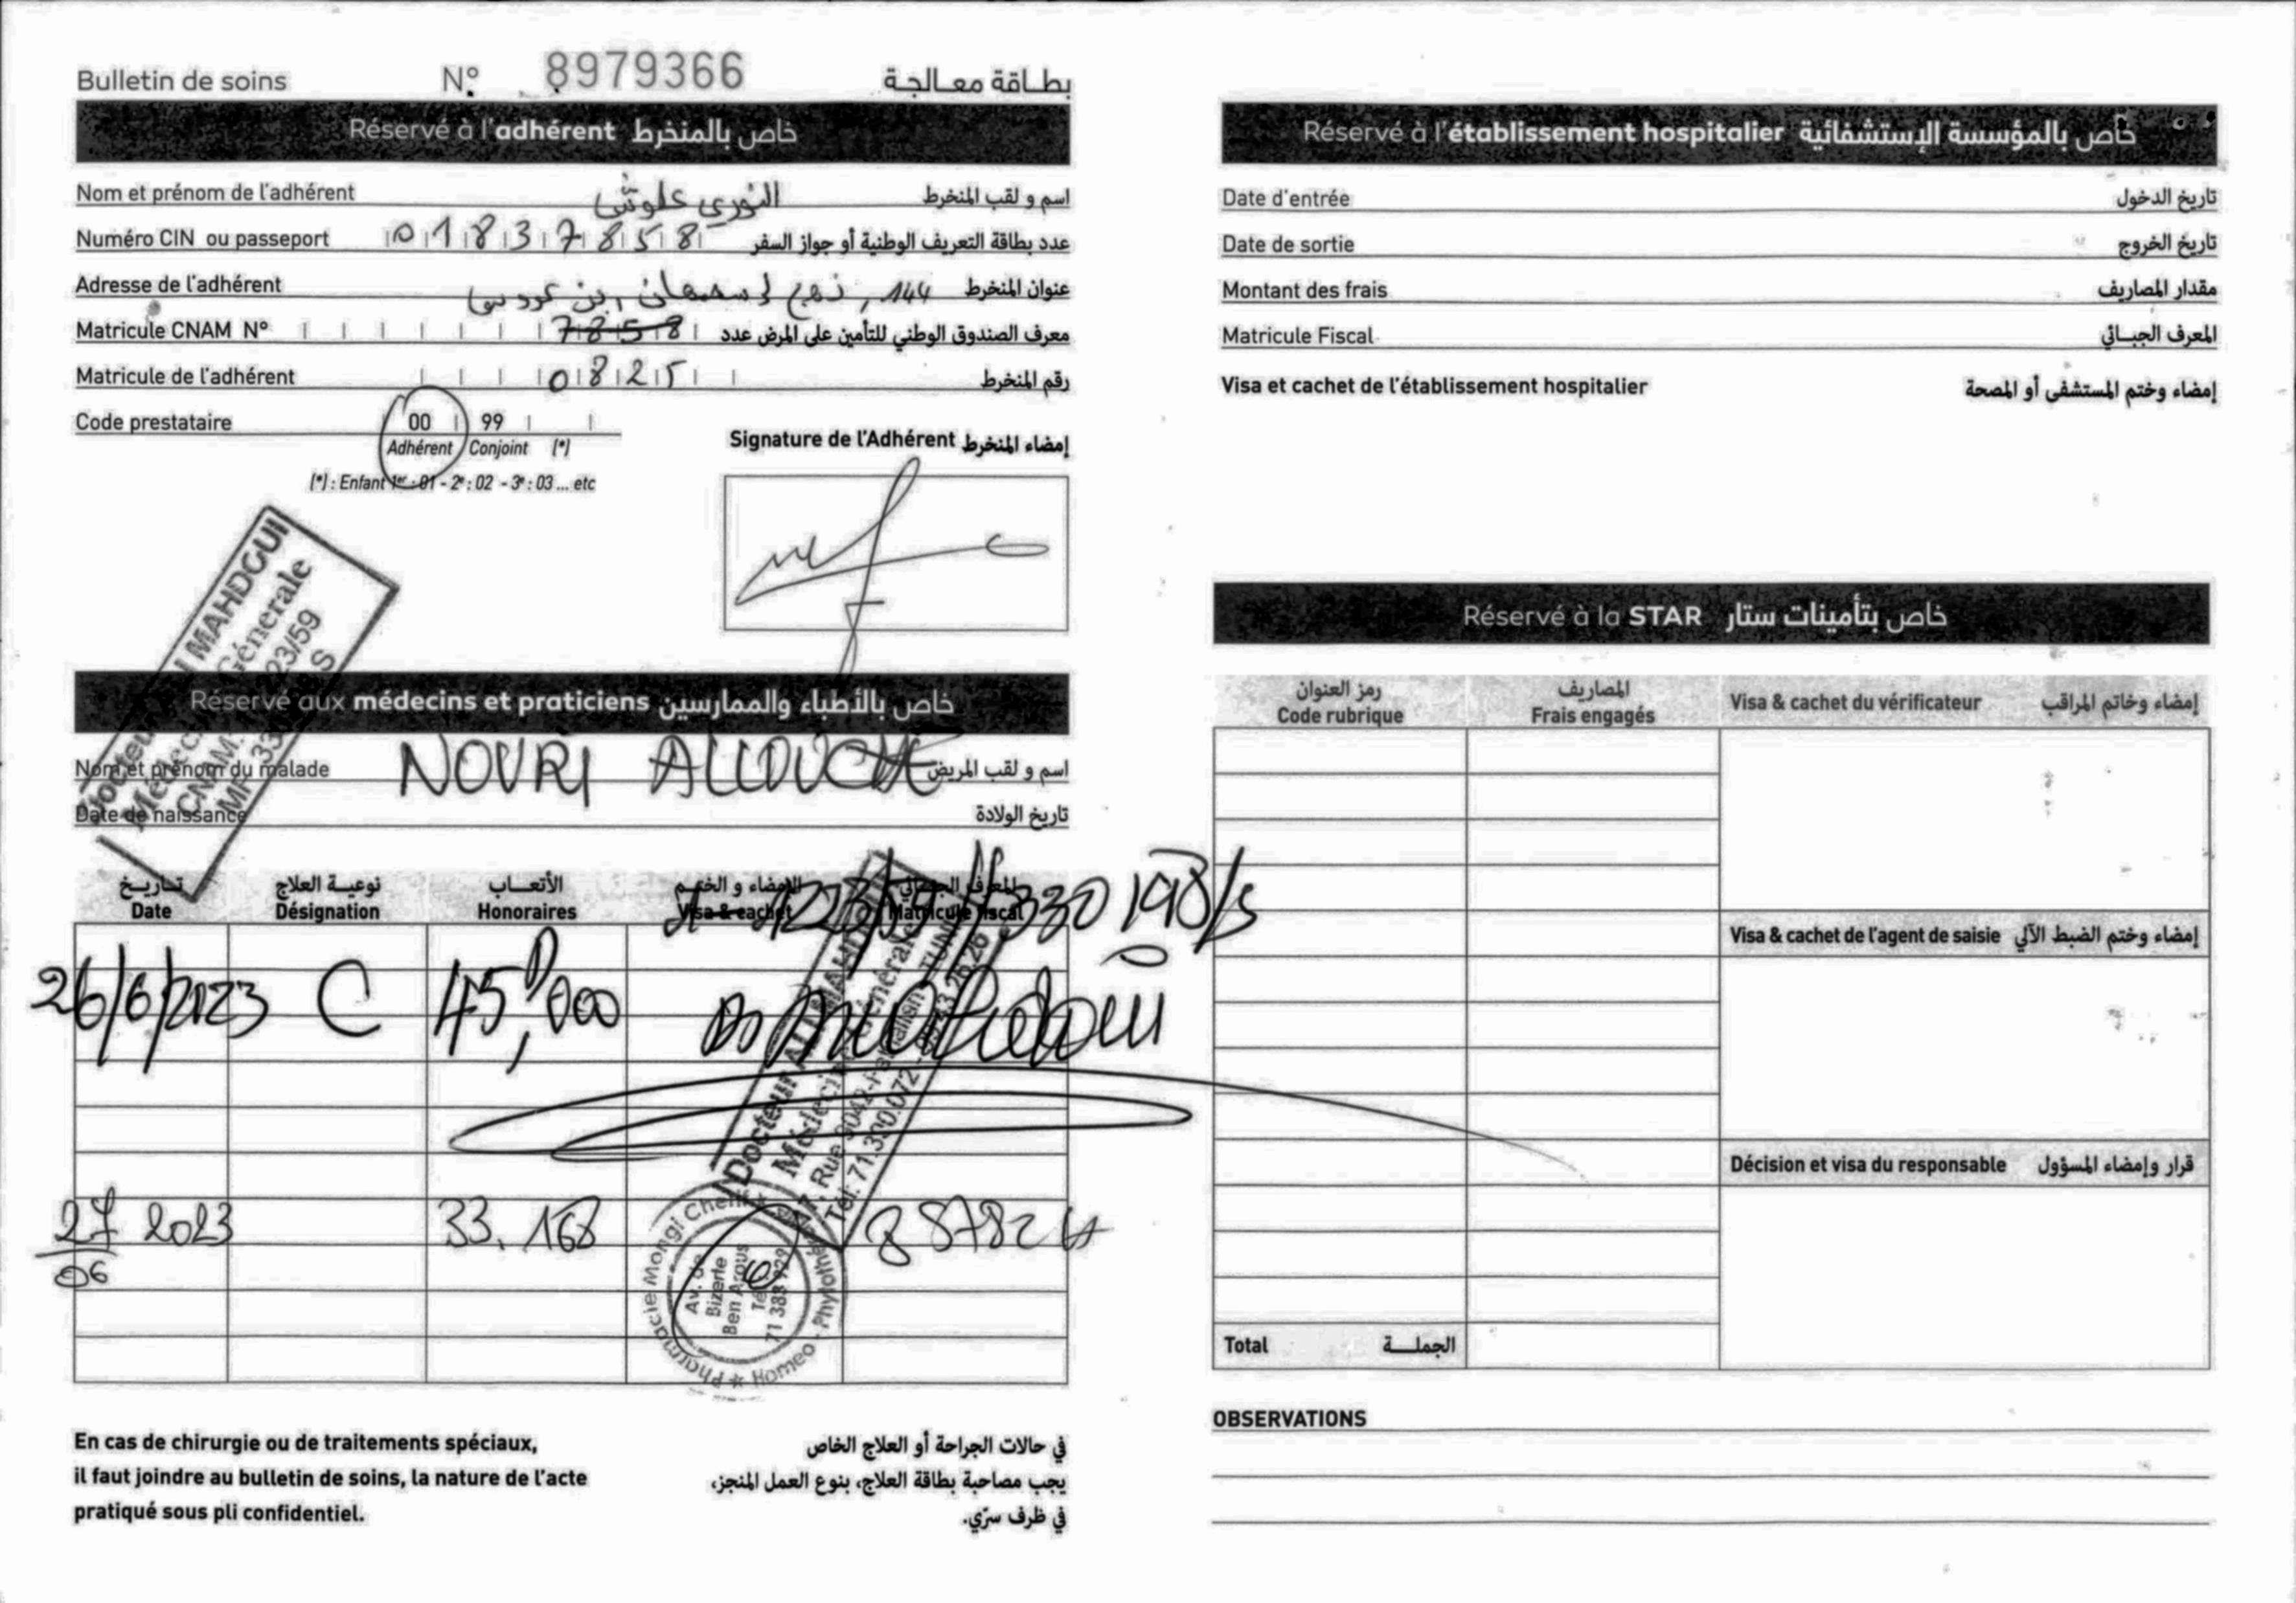 Bulletin de soins N° 8979366 بطاقة معالجة
Réservé à l'adhérent خاص بالمنخرط
Nom et prénom de l'adhérent النوري علوش اسم و لقب المنخرط
Numéro CIN ou passeport 01837858 عدد بطاقة التعريف الوطنية أو جواز السفر
Adresse de l'adhérent 144, نهج عنوان المنخرط
Matricule CNAM N° 7858 معرف الصندوق الوطني للتأمين على المرض عدد
Matricule de l'adhérent 0825 رقم المنخرط
Code prestataire 00 99
Adhérent Conjoint (*)
(*) : Enfant 1er : 01 - 2e : 02 - 3e : 03 ... etc
Signature de l'Adhérent إمضاء المنخرط
MAHDGUI
Générale
Réservé aux médecins et praticiens خاص بالأطباء والممارسين
Nom et prénom du malade NOURI ALLOUCHE اسم و لقب المريض
Date de naissance تاريخ الولادة
تاريخ نوعية العلاج الأتعاب الإمضاء و الختم المعرف الجبائي
Date Désignation Honoraires Visa & cachet Matricule fiscal
26/6/2023 C 45D,000
Docteur ALI MAHDGUI
27/06 2023 33.168
Pharmacie Mongi Cherif
Homeo - Phytothérapie
Av. de
Bizerte
Ben Arous
En cas de chirurgie ou de traitements spéciaux,
il faut joindre au bulletin de soins, la nature de l'acte
pratiqué sous pli confidentiel.
في حالات الجراحة أو العلاج الخاص
يجب مصاحبة بطاقة العلاج، بنوع العمل المنجز،
في ظرف سرّي.
Réservé à l'établissement hospitalier خاص بالمؤسسة الإستشفائية
Date d'entrée تاريخ الدخول
Date de sortie تاريخ الخروج
Montant des frais مقدار المصاريف
Matricule Fiscal المعرف الجبائي
Visa et cachet de l'établissement hospitalier إمضاء وختم المستشفى أو المصحة
Réservé à la STAR خاص بتأمينات ستار
رمز العنوان المصاريف
Code rubrique Frais engagés Visa & cachet du vérificateur إمضاء وخاتم المراقب
Visa & cachet de l'agent de saisie إمضاء وختم الضبط الآلي
Décision et visa du responsable قرار وإمضاء المسؤول
Total الجملة
OBSERVATIONS